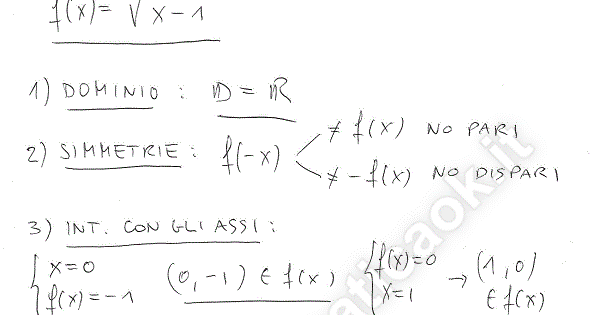 f(x) = √ x - 1
1) DOMINIO : D = ℝ
2) SIMMETRIE : f(-x) ≠ f(x) NO PARI
≠ - f(x) NO DISPARI
3) INT. CON GLI ASSI :
{ x = 0 (0, -1) ∈ f(x) { f(x) = 0 → (1, 0)
f(x) = -1 x = 1 ∈ f(x)
aticaok.it